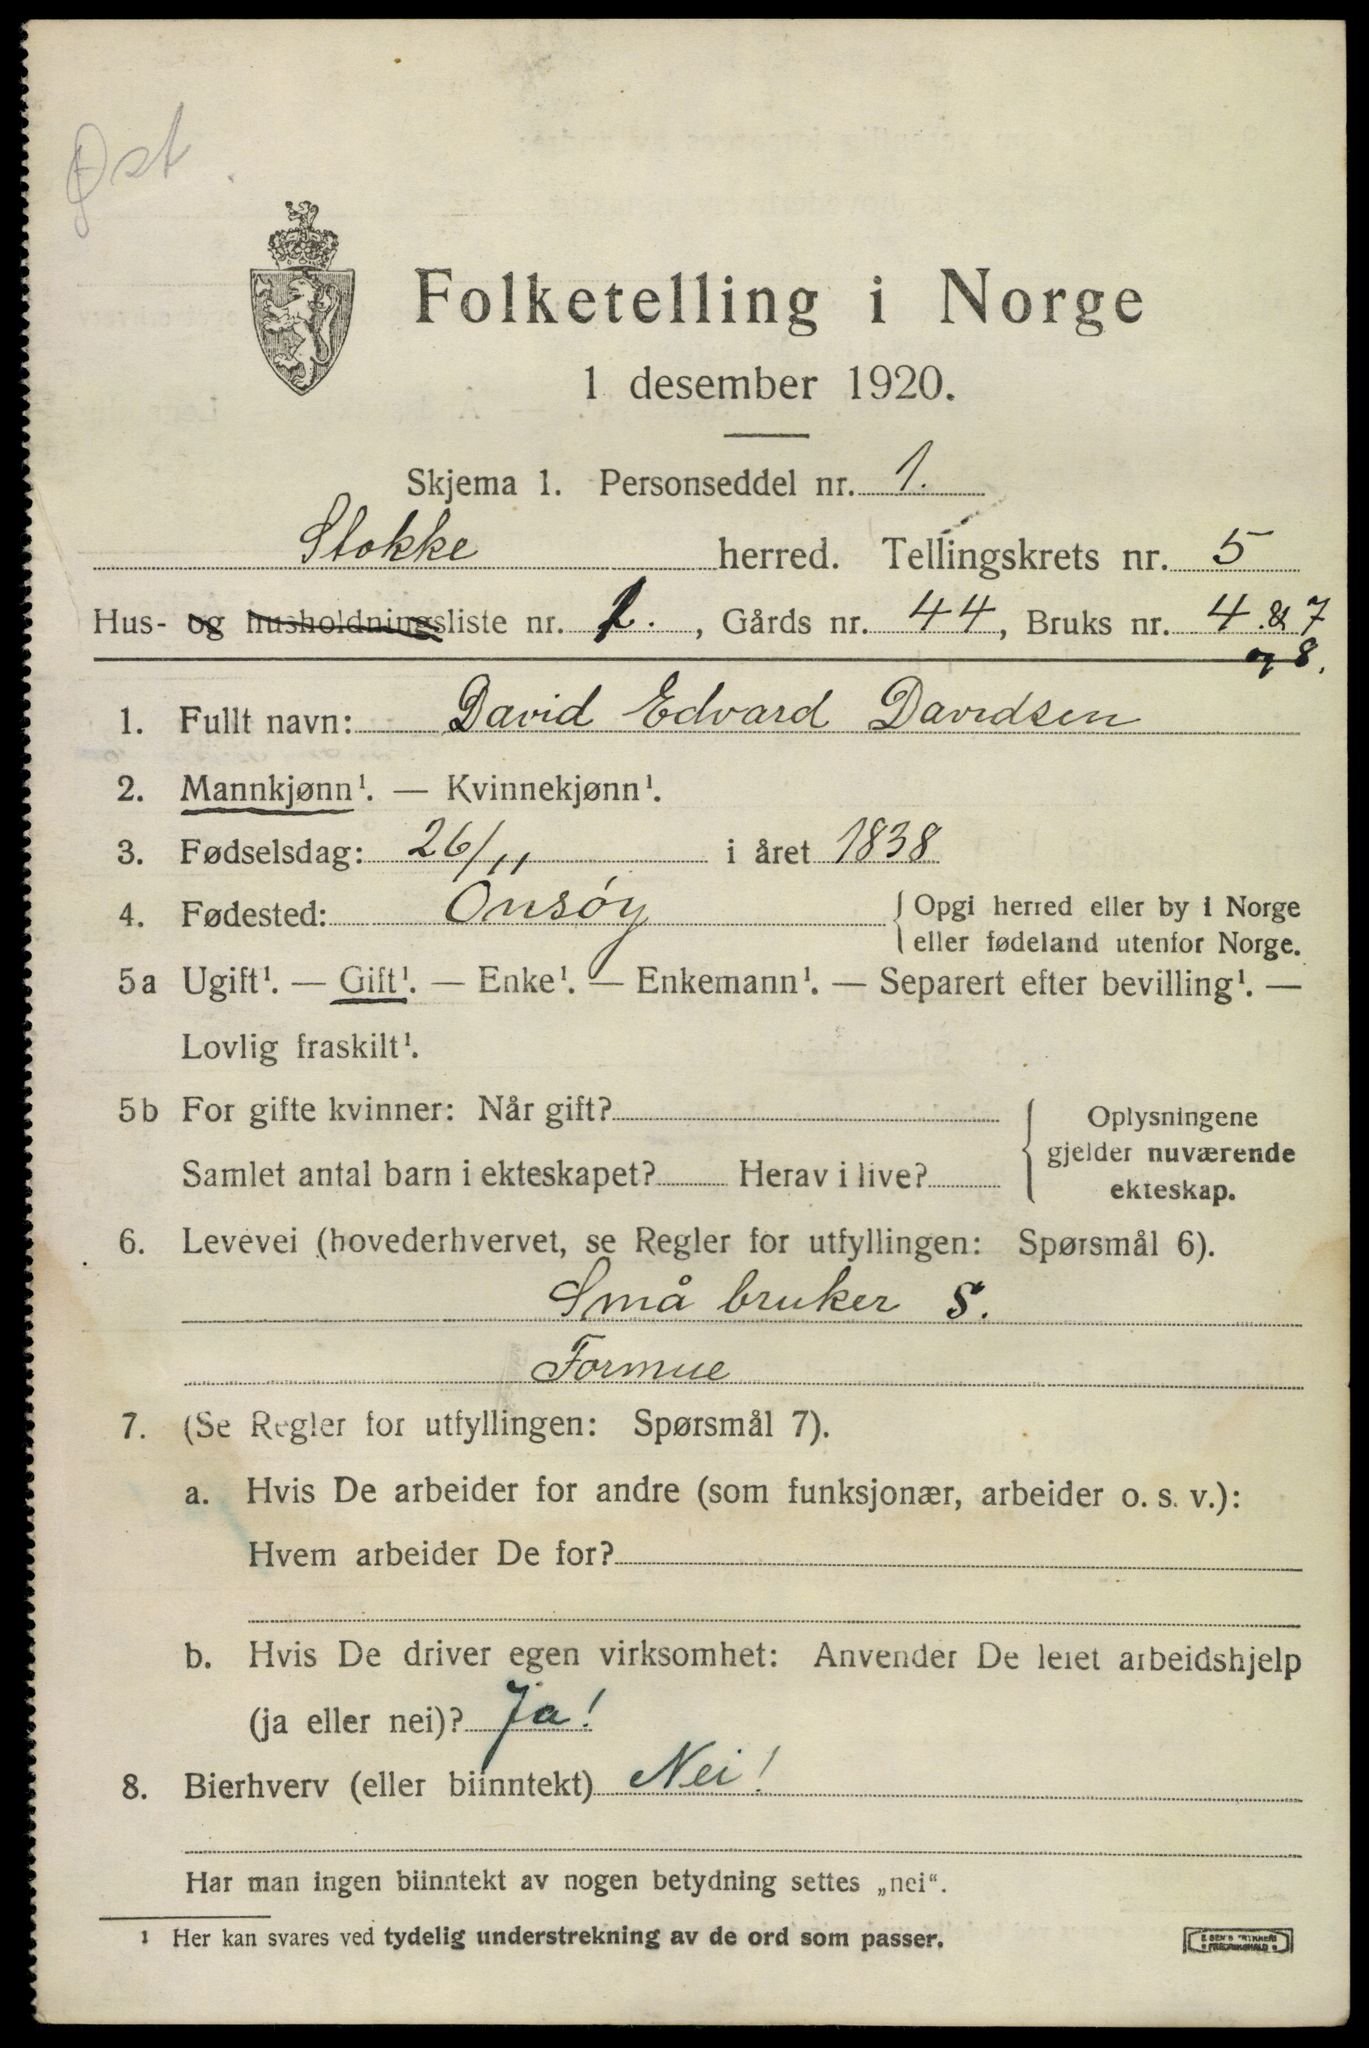 Øst.
Folketelling i Norge
1 desember 1920.
Skjema 1. Personseddel nr. 1.
Stokke herred. Tellingskrets nr. 5
Hus- og husholdningsliste nr. 1., Gårds nr. 44, Bruks nr. 4 & 7
og 8.
1. Fullt navn: David Edvard Davidsen
2. Mannkjønn¹. — Kvinnekjønn¹.
3. Fødselsdag: 26/11 i året 1838
4. Fødested: Onsøy { Opgi herred eller by i Norge
eller fødeland utenfor Norge.
5a Ugift¹. — Gift¹. — Enke¹. — Enkemann¹. — Separert efter bevilling¹. —
Lovlig fraskilt¹.
5b For gifte kvinner: Når gift?
Samlet antal barn i ekteskapet? Herav i live?
Oplysningene
gjelder nuværende
ekteskap.
6. Levevei (hovederhvervet, se Regler for utfyllingen: Spørsmål 6).
Små bruker S.
Formue
7. (Se Regler for utfyllingen: Spørsmål 7).
a. Hvis De arbeider for andre (som funksjonær, arbeider o. s. v.):
Hvem arbeider De for?
b. Hvis De driver egen virksomhet: Anvender De leiet arbeidshjelp
(ja eller nei)? Ja!
8. Bierhverv (eller biinntekt) Nei!
Har man ingen biinntekt av nogen betydning settes „nei“.
¹ Her kan svares ved tydelig understrekning av de ord som passer.